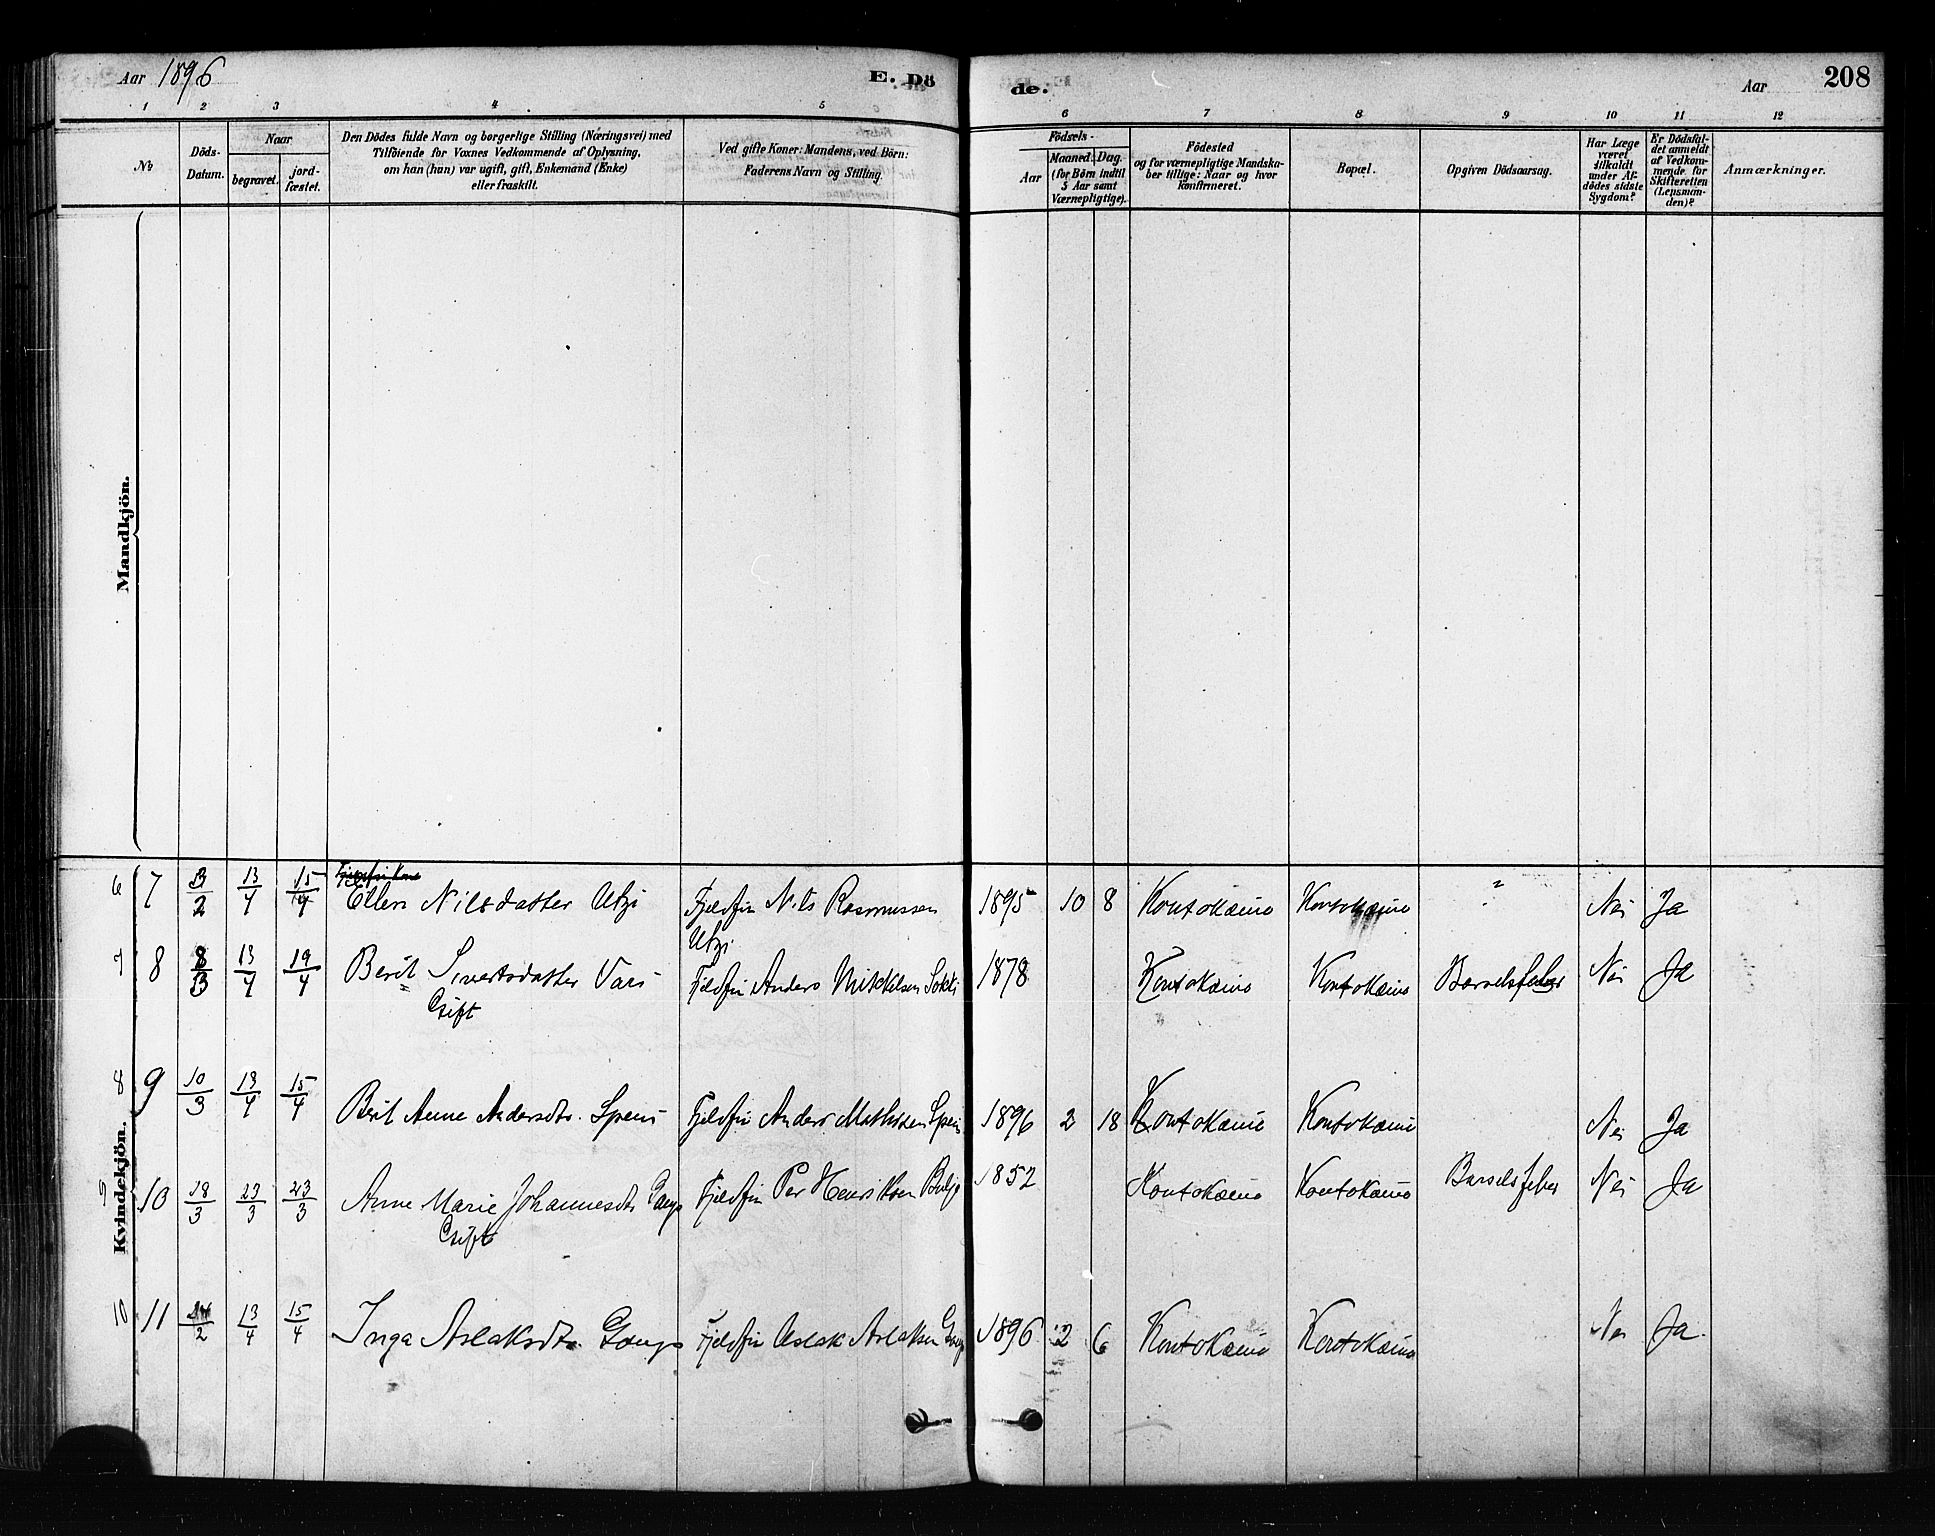 Aar 1896
E. Dö
de.
Aar
208
1 2 3 4 5 6 7 8 9 10 11 12
No
Döds-
Datum.
Naar
begravet.
jord-
fæstet.
Den Dödes fulde Navn og borgerlige Stilling (Næringsvei) med
Tilföiende for Voxnes Vedkommende af Oplysning,
om han (hun) var ugift, gift, Enkemand (Enke)
eller fraskilt.
Ved gifte Koner: Mandens, ved Börn:
Faderens Navn og Stilling.
Födsels-
Aar
Maaned. Dag.
(for Börn indtil
5 Aar samt
Værnepligtige).
Födested
og for værnepligtige Mandska-
ber tillige: Naar og hvor
konfirmeret.
Bopæl.
Opgiven Dödsaarsag.
Har Læge
været
tilkaldt
under Af-
dödes sidste
Sygdom?
Er Dödsfal-
det anmeldt
af Vedkom-
mende for
Skifteretten
(Lensman-
den)?
Anmærkninger.
Mandkjön.
Kvindekjön.
6 7 3/2 13/4 15/4 Ellen Nilsdatter Utzi Fjeldfin Nils Rasmussen 1895 10 8 Koutokæino Koutokæino ? Nei Ja
Utzi
7 8 8/3 13/4 19/4 Berit Sivertsdatter Vars Fjeldfin Anders Mitchelsen Sokki 1878 Koutokæino Koutokæino Barselsfeber Nei Ja
Gift
8 9 10/3 13/4 15/4 Berit Anne Andersdtr. Spein Fjeldfin Anders Mathisen Spein 1896 2 18 Koutokæino Koutokæino Nei Ja
9 10 18/3 23/3 23/3 Anne Marie Johannesdtr Gaup Fjeldfin Per Henriksen Buljo 1852 Koutokæino Koutokæino Barselsfeber Nei Ja
Gift
10 11 /2 13/4 15/4 Inga Aslaksdtr. Gaup Fjeldfin Aslak Aslaksen Gaup 1896 2 6 Koutokæino Koutokæino Nei Ja.